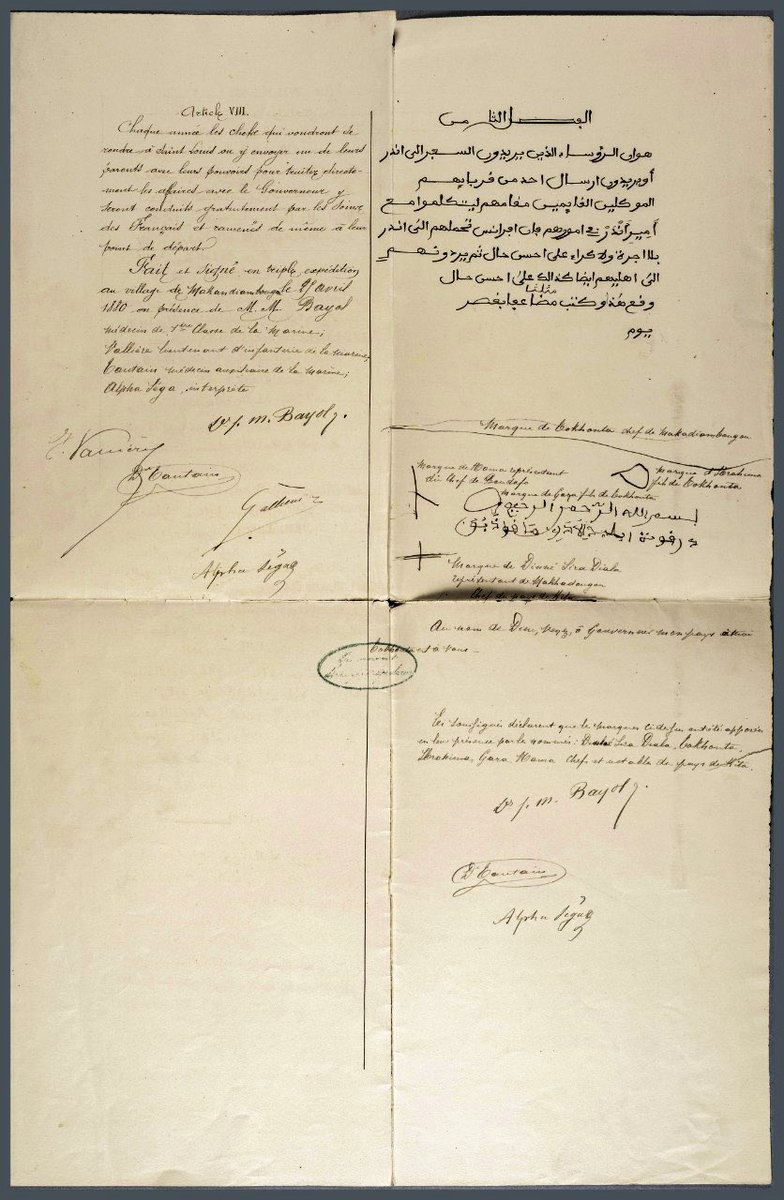 Article VIII.
Chaque année les chefs qui voudront se
rendre à Saint Louis ou y envoyer un de leurs
parents avec leurs pouvoirs pour traiter directe-
ment les affaires avec le Gouverneur y
seront conduits gratuitement par les soins
des Français et ramenés de même à leur
point de départ.
Fait et signé en triple expédition
au village de Makandiambougou le 25 avril
1880 en présence de M.M. Bayol
médecin de 1ère Classe de la Marine;
Vallière lieutenant d'infanterie de la marine;
Tautain médecin auxiliaire de la Marine;
Alpha Sega, interprète
Dr J. M. Bayol
Vallière
Dr Tautain
Gallieni
Alpha Séga
الفصل الثامن
هو ان الرؤساء الذي يريدون السفر الى اندر
او يريدون ارسال احد من قرباتهم
الموكلين القايمين مقامهم ليتكلموا مع
أمير أندر في امورهم فان افرانس تحملهم الى اندر
بلا اجرة ولا كراء على احسن حال ثم يردونهم
الى اهليهم ايضا كذالك على احسن حال
وقع هذا وكتب
يوم
Marque de Tokhonta chef de Makadiambougou
Marque de Hama représentant
du Chef de
Marque d'Ibrahima
fils de Tokhonta
Marque de Gara fils de Tokhonta
بسم الله الرحمن الرحيم
Marque de Diansé Sira Diala
représentant de Makhadougou
Chef du pays de Kita
Au nom de Dieu, ô Gouverneur mon pays
est à vous
Les soussignés déclarent que les marques ci dessus ont été apposées
en leur présence par les nommés: Sira Diala, Tokhonta,
Ibrahima, Gara Hama Chef et notable du pays de Kita.
Dr J. M. Bayol
Dr Tautain
Alpha Séga